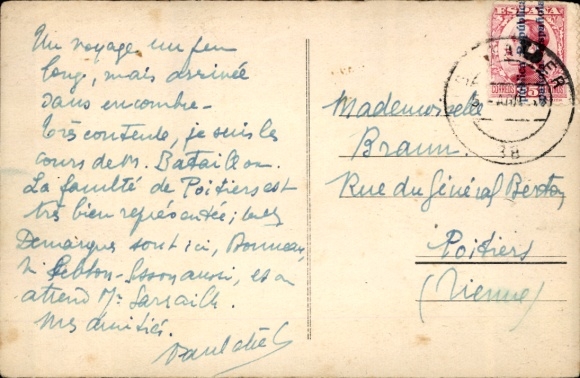 Un voyage un peu
long, mais arrivée
sans encombre -
Très contente, je suis les
cours de M. Bataillon.
La faculté de Poitiers est
très bien représentée ; les
Demarque sont ici, Bonneau,
aussi, et on
attend Mr Sarrailh.
Mes amitiés.
Mademoiselle
Braun
Rue du Général Berton
Poitiers
(Vienne)
ESPAÑA
38